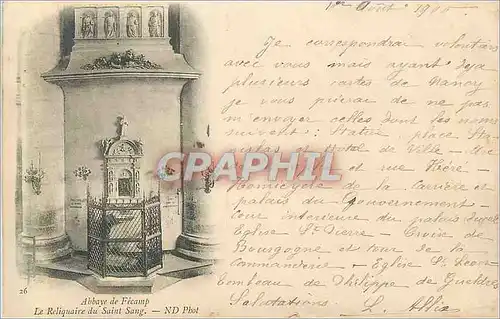 Août 1905
Je correspondrai volontiers
avec vous mais ayant déjà
plusieurs cartes de Nancy
je vous prierai de ne pas
m'envoyer celles dont les noms
suivent: Statue place Sta-
nislas et Hotel de Ville - Arc
et rue Héré -
Hémicycle de la Carrière et
palais du Gouvernement -
Cour intérieure du palais ducal
Eglise St Pierre - Croix de
Bourgogne et tour de la
commanderie - Eglise St Léon
Tombeau de Philippe de Gueldres
Salutations.
CPARAMA
26
Abbaye de Fécamp
Le Reliquaire du Saint Sang. — ND Phot